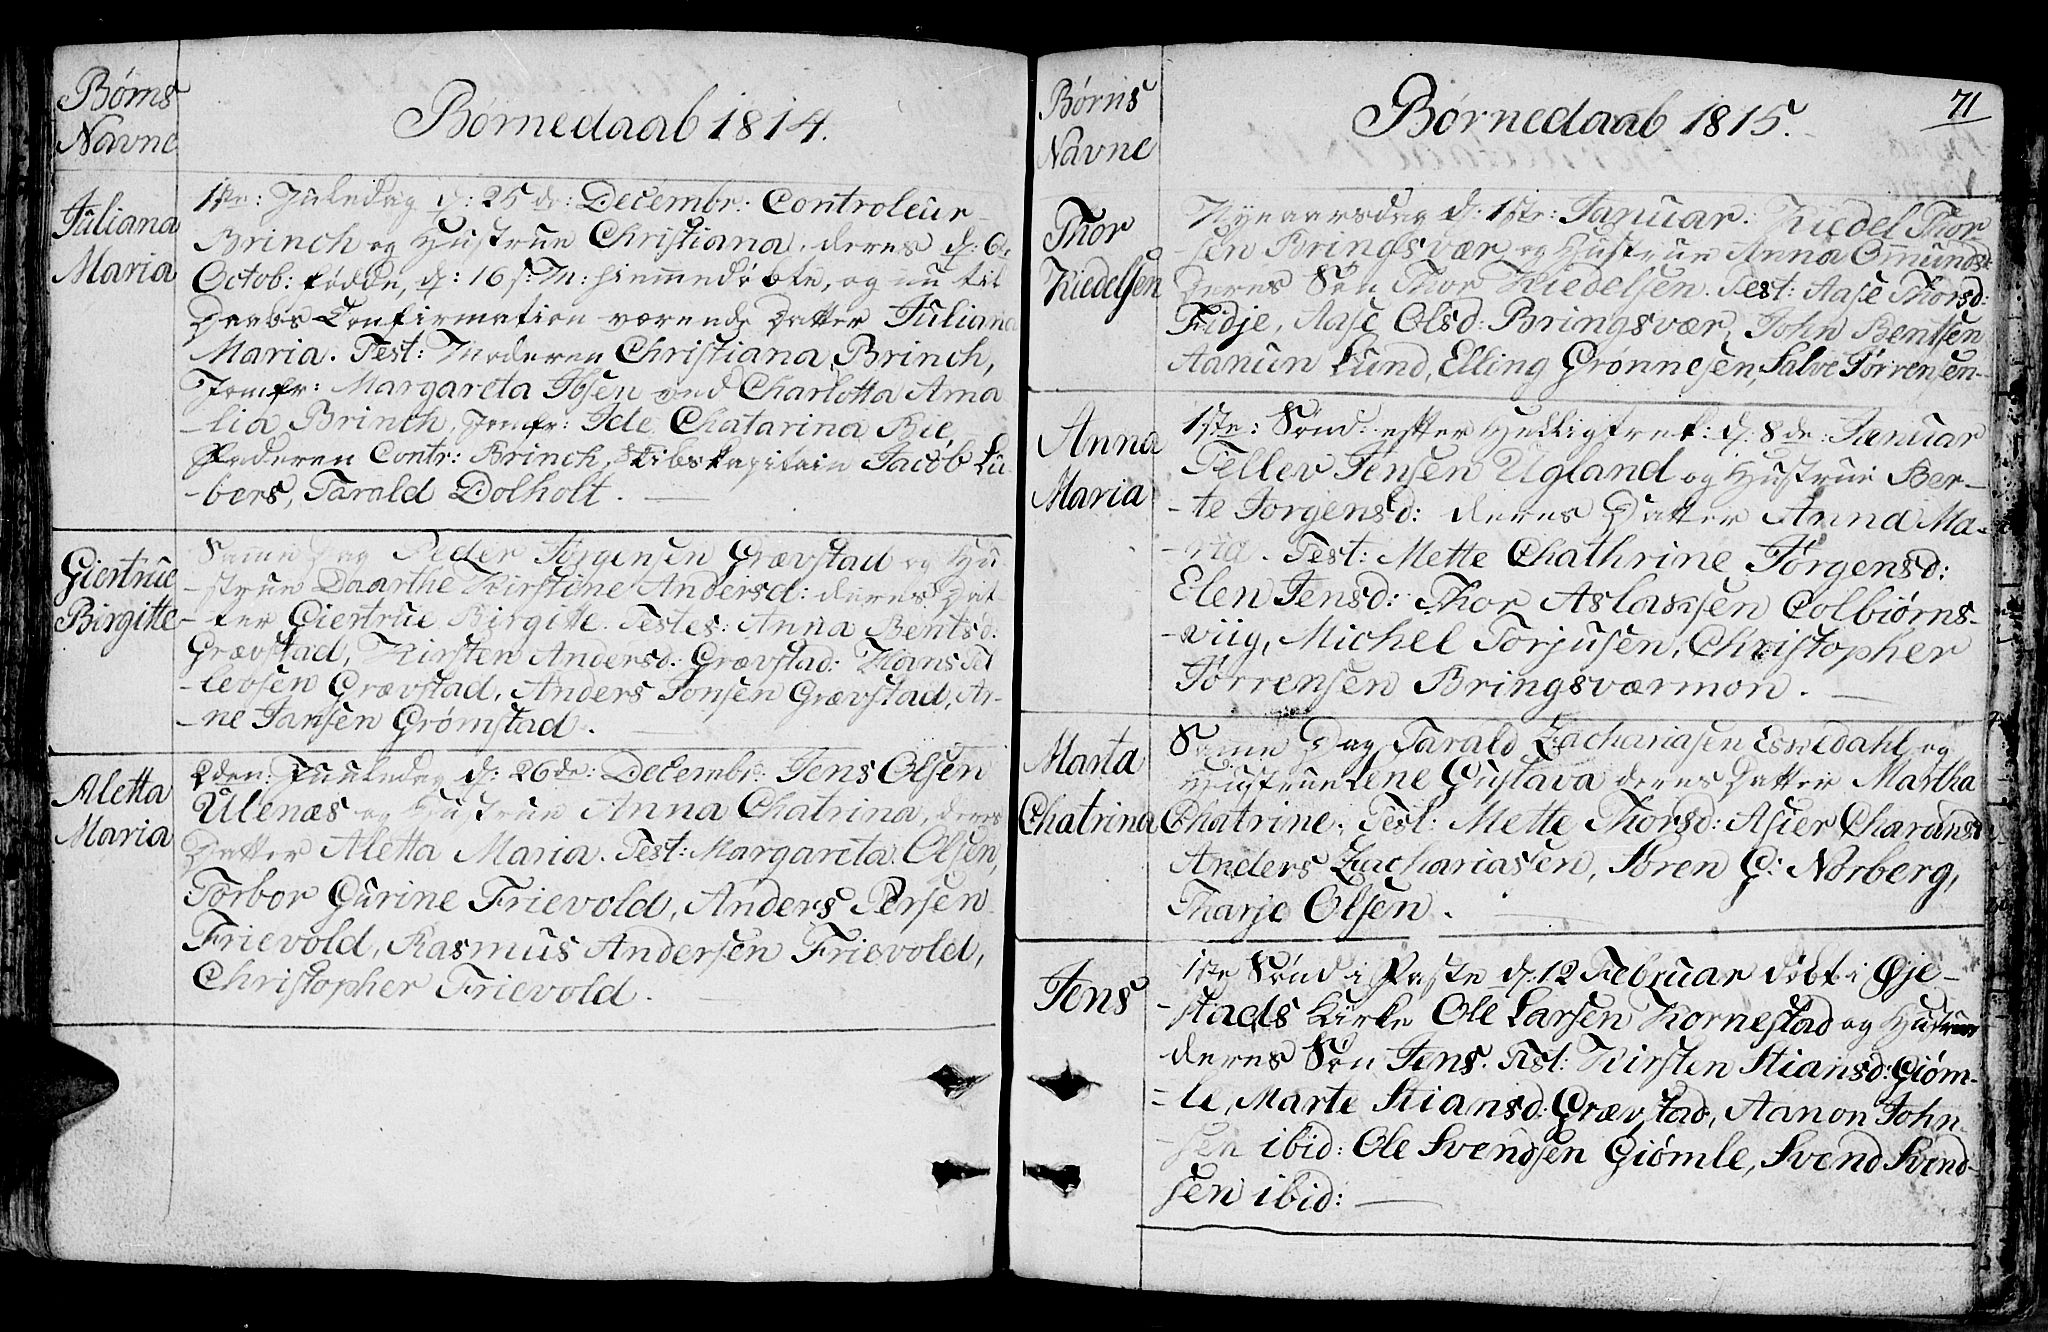 Børns
Navne
Børnedaab 1814.
Juliana
Maria
1ste: Juledag d: 25de: Decembr: Controleur
Brinch og Hustrue Christiana, deres d: 6te
Octob: fødde, d: 16 s: M: hiemmedøbte, og nu til
Daabs Confirmation værende Datter Juliana
Maria. Test: Moderen Christiana Brinch,
Jomfr: Margareta Ibsen and Charlotta Ama
-lia Brinch, Jomfr: Ide Chatarina Bie,
Faderen Contr: Brinch, Skibskapitain Jacob Lü-
-bers, Tarald Dolholt.
Giertrue
Birgitte
Samme Dag Peder Jørgensen Grævstad og Hu
-strue Daarthe Kirstine Andersd: deres Dat
-ter Giertrue Birgitte. Testes: Anna Bentsd:
Grævstad, Kirsten Andersd: Grævstad: Hans Tel
-levsen Grævstad, Anders Jonsen Grævstad, Ar-
-ne Jansen Grømstad.
Aletta
Maria
2den: Juuledag d: 26de: Decembr: Jens Olsen
Ulenæs og Hustrue Anna Chatrina, deres
Datter Aletta Maria. Test: Margareta Olsen,
Torbor Gurine Frievold, Anders Persen
Frievold, Rasmus Andersen Frievold,
Christopher Frievold.
71
Børns
Navne
Børnedaab 1815.
Thor
Kiedelsen
Nyeaarsdag d: 1ste: Januar: Kiedel Thor
sen Bringsvær og Hustrue Anna Omunds:
deres Søn Thor Kiedelsen. Test: Aase Thorsd:
Fidje, Aase Olsd: Bringsvær, John Bentsen
Aanun Lund, Elling Grønnesen, Salve Tørrensen-
Anna
Maria
1ste: Sønd: efter Helligtrek: d: 8de: Januar
Tellev Jensen Ugland og Hustrue Ber-
-te Jorgensd: deres Datter Anna Ma-
-ria. Test: Mette Chathrine Jørgensd:
Elen Jensd: Thor Aslaksen Colbiørns-
-viig, Michel Torjusen, Christopher
Tørrensen Bringsværmon.
Marta
Chatrina
Samme Dag Tarald Zachariasen Esvedahl og
Hustrue Lene Gustava deres Datter Martha
Chatrine, Test: Mette Thorsd: Asier
Anders Zachariasen, Søren C: Norberg,
Tharje Olsen.
Jens
1ste Sønd i Faste d: 12 Februar døbt i Øje-
-stads Kirke Ole Larsen Kornestad og Hustrue
deres Søn Jens. Test: Kirsten Stiansd: Giøm-
-le, Marte Stiansd: Grævstad, Aanon John-
-sen ibid: Ole Svendsen Giømle, Svend Svend-
sen ibid: